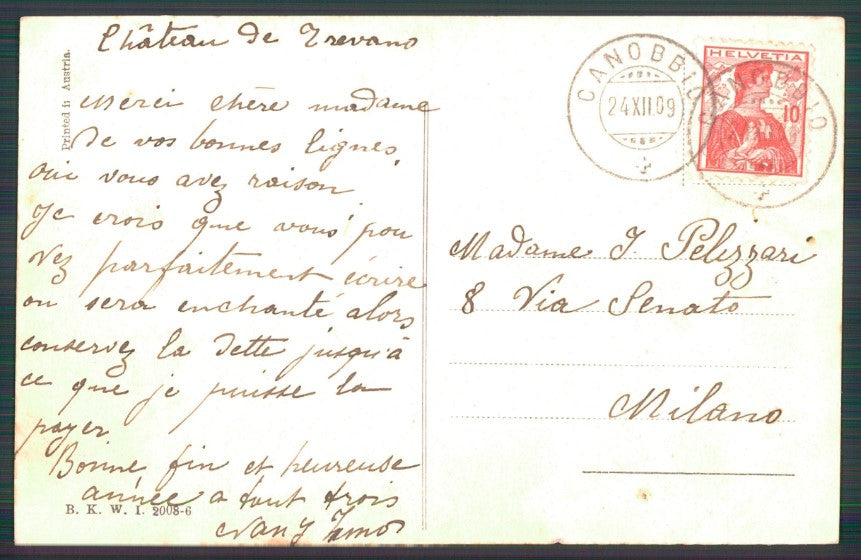 Château de Trevano
Merci chère madame
de vos bonnes lignes
oui vous avez raison
Je crois que vous pou
vez parfaitement écrire
on sera enchanté alors
conservez la dette jusqu'à
ce que je puisse la
payer
Bonne fin et heureuse
année a tout trois
Printed in Austria.
B. K. W. I. 2008-6
CANOBBIO
24XII.09
HELVETIA
10
CANOBBIO
Madame J. Pelizzari
8 Via Senato
Milano